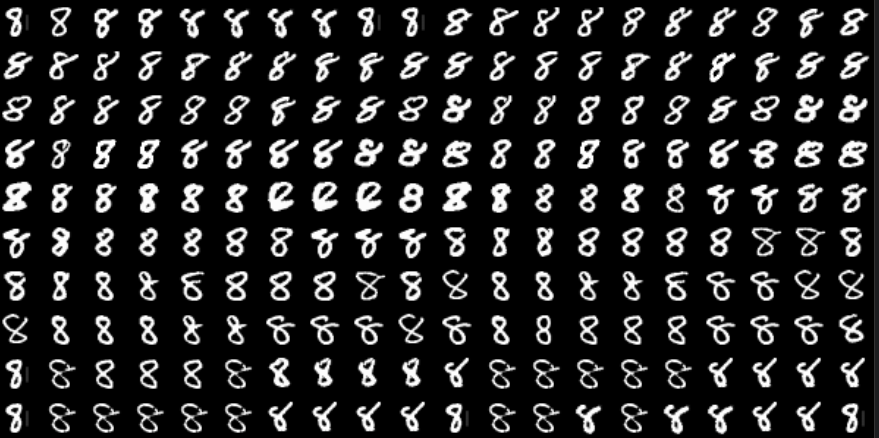 8 8 8 8 8 8 8 8 8 8 8 8 8 8 8 8 8 8 8 8
8 8 8 8 8 8 8 8 8 8 8 8 8 8 8 8 8 8 8 8
8 8 8 8 8 8 8 8 8 8 8 8 8 8 8 8 8 8 8 8
8 8 8 8 8 8 8 8 8 8 8 8 8 8 8 8 8 8 8 8
8 8 8 8 8 8 8 8 8 8 8 8 8 8 8 8 8
8 8 8 8 8 8 8 8 8 8 8 8 8 8 8 8 8 8 8 8
8 8 8 8 8 8 8 8 8 8 8 8 8 8 8 8 8 8 8 8
8 8 8 8 8 8 8 8 8 8 8 8 8 8 8 8 8 8 8 8
8 8 8 8 8 8 8 8 8 8 8 8 8 8 8 8 8 8 8 8
8 8 8 8 8 8 8 8 8 8 8 8 8 8 8 8 8 8 8 8